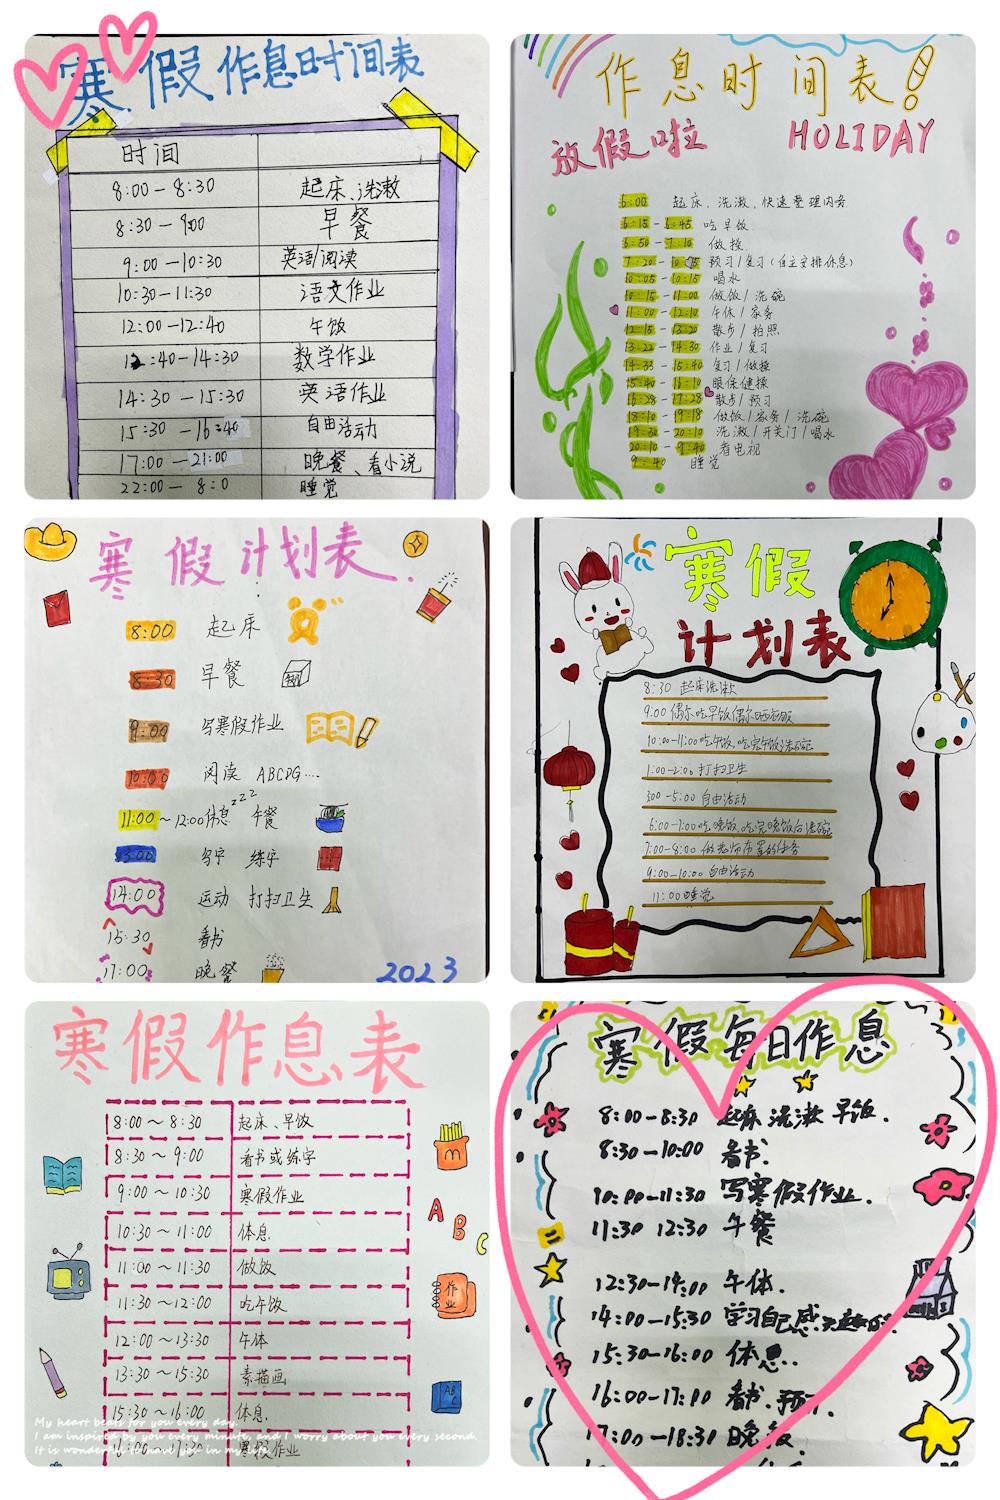 寒假作息时间表
时间
8:00－8:30 起床、洗漱
8:30－9:00 早餐
9:00－10:30 英语阅读
10:30－11:30 语文作业
12:00－12:40 午饭
12:40－14:30 数学作业
14:30－15:30 英语作业
15:30－16:40 自由活动
17:00－21:00 晚餐、看小说
22:00－8:0 睡觉
作息时间表!
放假啦 HOLIDAY
6:00 起床、洗漱、快速整理内务
6:15－6:45 吃早饭
6:50－7:10 做操
预习/复习(自主安排休息)
10:05－10:15 喝水
10:15－11:00 做饭/洗碗
11:00－12:10 午休/家务
12:15－13:20 散步/拍照
13:22－14:30 作业/复习
14:33－15:40 复习/做操
15:40－16:10 眼保健操
16:28－17:28 散步/预习
18:10－19:18 做饭/家务/洗碗
19:30－20:10 洗漱/开关门/喝水
20:10－9:40 看电视
9:40 睡觉
寒假计划表.
8:00 起床
8:30 早餐
9:00 写寒假作业
10:00 阅读 ABCDG....
11:00~12:00休息zzz 午餐
13:00 练字
14:00 运动 打扫卫生
15:30 看书
17:00 晚餐
2023
寒假
计划表
8:30 起床洗漱
9:00 偶尔吃早饭偶尔晒衣服
10:00-11:00吃午饭,吃完午饭洗碗
1:00-2:00 打扫卫生
300-5:00 自由活动
6:00-7:00吃晚饭,吃完晚饭后洗碗
7:00-8:00 做老师布置的任务
9:00-10:00 自由活动
11:00睡觉
寒假作息表
8:00～8:30 起床、早饭
8:30～9:00 看书或练字
9:00～10:30 寒假作业
10:30～11:00 休息.
11:00～11:30 做饭
11:30～12:00 吃午饭
12:00～13:30 午休
13:30～15:30 素描画
15:30～16:00 休息.
作业
A
B
C
ABC
My heart beats for you every day.
I am inspired by you every minute, and I worry about you every second.
It is wonderful to have you in my life.
寒假每日作息
8:00－8:30 起床 洗漱 早饭.
8:30－10:00 看书.
10:00－11:30 写寒假作业.
11:30 12:30 午餐
12:30－14:00 午休.
14:00－15:30 学习自己感
15:30－16:00 休息.
16:00－17:00 看书.预习.
17:00－18:30 晚饭.